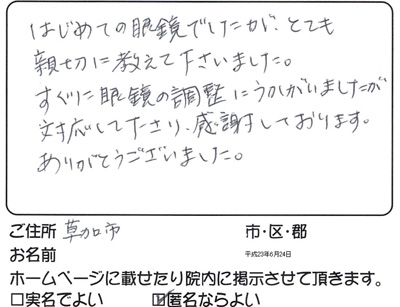 はじめての眼鏡でしたが、とても
親切に教えて下さいました。
すぐに眼鏡の調整にうかがいましたが
対応して下さり、感謝しております。
ありがとうございました。
ご住所 草加市 市・区・郡
お名前 平成23年6月24日
ホームページに載せたり院内に掲示させて頂きます。
□実名でよい ☑匿名ならよい